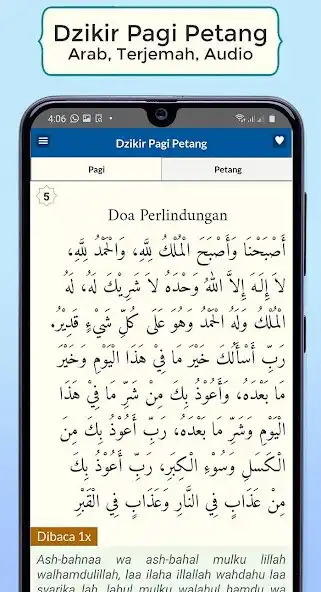 Dzikir Pagi Petang
Arab, Terjemah, Audio
4:06
Dzikir Pagi Petang
Pagi
Petang
5
Doa Perlindungan
أَصْبَحْنَا وَأَصْبَحَ الْمُلْكُ لِلَّهِ، وَالْحَمْدُ لِلَّهِ،
لاَ إِلَـهَ إِلاَّ اللهُ وَحْدَهُ لاَ شَرِيْكَ لَهُ، لَهُ
الْمُلْكُ وَلَهُ الْحَمْدُ وَهُوَ عَلَى كُلِّ شَيْءٍ قَدِيْرُ.
رَبِّ أَسْأَلُكَ خَيْرَ مَا فِيْ هَذَا الْيَوْمِ وَخَيْرَ
مَا بَعْدَهُ، وَأَعُوْذُ بِكَ مِنْ شَرِّ مَا فِيْ هَذَا
الْيَوْمِ وَشَرِّ مَا بَعْدَهُ، رَبِّ أَعُوْذُ بِكَ مِنَ
الْكَسَلِ وَسُوْءِ الْكِبَرِ، رَبِّ أَعُوْذُ بِكَ
مِنْ عَذَابٍ فِي النَّارِ وَعَذَابٍ فِي الْقَبْرِ
Dibaca 1x
Ash-bahnaa wa ash-bahal mulku lillah
walhamdulillah, laa ilaha illallah wahdahu laa
syarika lah, lahul mulku walahul hamdu wa